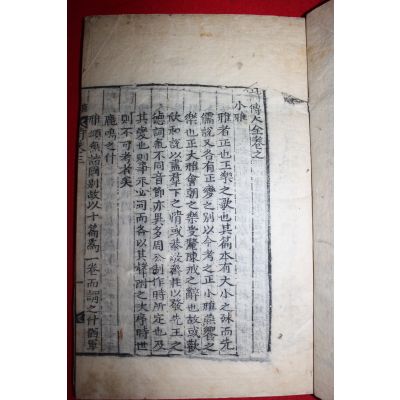 傳大全卷之
小雅
雅者正也正樂之歌也其篇本有大小之殊而先
儒說又各有正變之別以今考之正小雅燕饗之
樂也正大雅會朝之樂受釐陳戒之辭也故或歡
欣和說以盡羣下之情或恭敬齊莊以發先王之
德詞氣不同音節亦異多周公制作時所定也及
其變也則事未必同而各以其聲附之次序時世
則不可考者矣
鹿鳴之什
雅頌無諸國別故以十篇爲一卷而謂之什猶軍